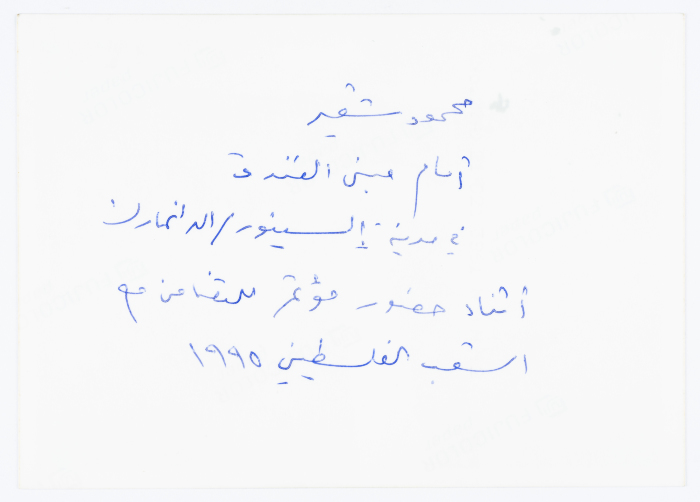 محمود شقير
أمام مبنى الفندق
في مدينة إلسينور/الدانمارك
أثناء حضور مؤتمر للتضامن مع
الشعب الفلسطيني ١٩٩٥